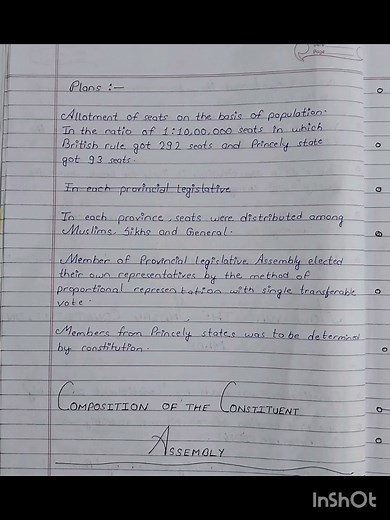 Plans :—
Allotment of seats on the basis of population.
In the ratio of 1:10,00,000 seats in which
British rule got 292 seats and Princely state
got 93 seats.
In each provincial legislative
In each province, seats were distributed among
Muslims, Sikhs and General.
Member of Provincial Legislative Assembly elected
their own representatives by the method of
proportional representation with single transferable
vote.
Members from Princely states was to be determined
by constitution.
COMPOSITION OF THE CONSTITUENT
ASSEMBLY
InShOt